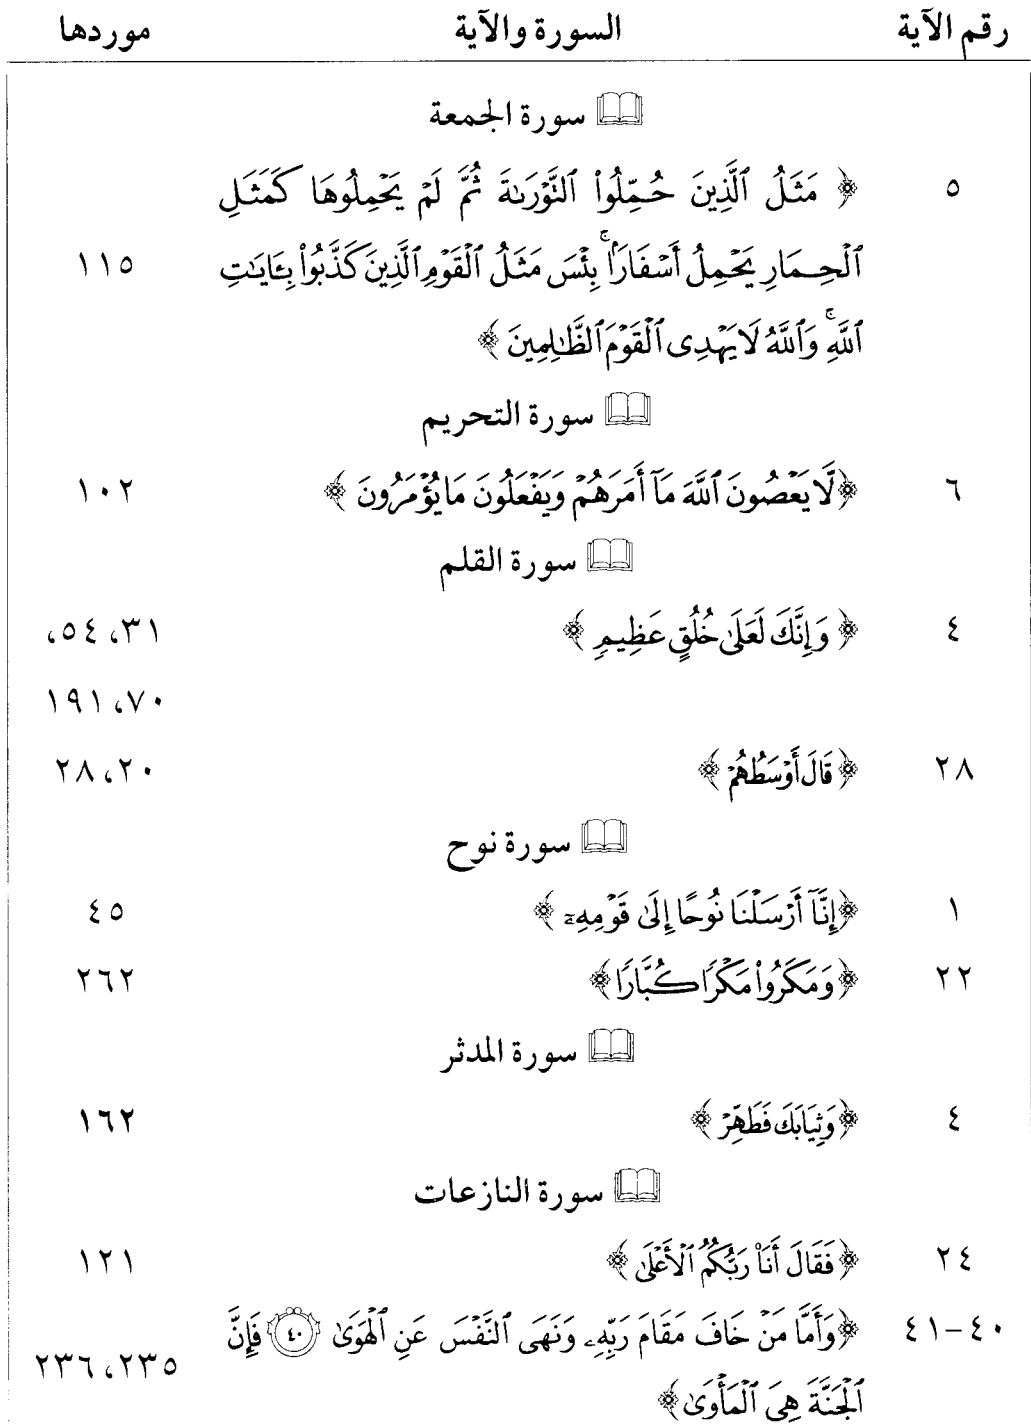 رقم الآية السورة والآية موردها
سورة الجمعة
٥ ﴿ مَثَلُ ٱلَّذِينَ حُمِّلُوا۟ ٱلتَّوْرَىٰةَ ثُمَّ لَمْ يَحْمِلُوهَا كَمَثَلِ
ٱلْحِمَارِ يَحْمِلُ أَسْفَارًۢا ۚ بِئْسَ مَثَلُ ٱلْقَوْمِ ٱلَّذِينَ كَذَّبُوا۟ بِـَٔايَـٰتِ ١١٥
ٱللَّهِ ۚ وَٱللَّهُ لَا يَهْدِى ٱلْقَوْمَ ٱلظَّـٰلِمِينَ ﴾
سورة التحريم
٦ ﴿ لَّا يَعْصُونَ ٱللَّهَ مَآ أَمَرَهُمْ وَيَفْعَلُونَ مَا يُؤْمَرُونَ ﴾ ١٠٢
سورة القلم
٤ ﴿ وَإِنَّكَ لَعَلَىٰ خُلُقٍ عَظِيمٍ ﴾ ٣١، ٥٤،
٧٠، ١٩١
٢٨ ﴿ قَالَ أَوْسَطُهُمْ ﴾ ٢٠، ٢٨
سورة نوح
١ ﴿ إِنَّآ أَرْسَلْنَا نُوحًا إِلَىٰ قَوْمِهِۦٓ ﴾ ٤٥
٢٢ ﴿ وَمَكَرُوا۟ مَكْرًا كُبَّارًا ﴾ ٢٦٢
سورة المدثر
٤ ﴿ وَثِيَابَكَ فَطَهِّرْ ﴾ ١٦٢
سورة النازعات
٢٤ ﴿ فَقَالَ أَنَا۠ رَبُّكُمُ ٱلْأَعْلَىٰ ﴾ ١٢١
٤٠-٤١ ﴿ وَأَمَّا مَنْ خَافَ مَقَامَ رَبِّهِۦ وَنَهَى ٱلنَّفْسَ عَنِ ٱلْهَوَىٰ ٤٠ فَإِنَّ
ٱلْجَنَّةَ هِىَ ٱلْمَأْوَىٰ ﴾ ٢٣٥، ٢٣٦